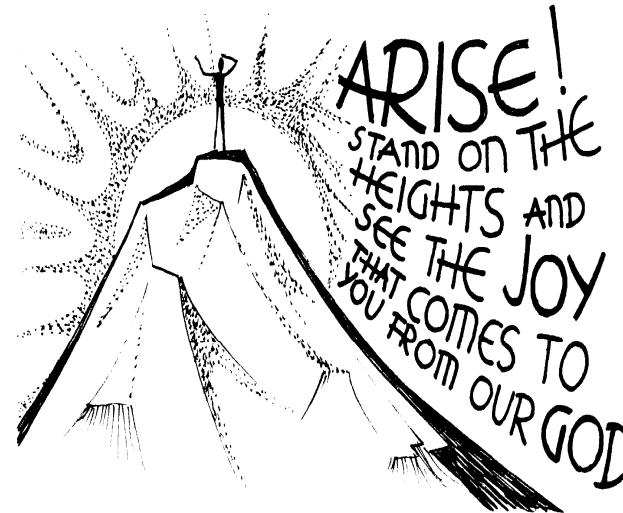 ARISE!
STAND ON THE
HEIGHTS AND
SEE THE JOY
THAT COMES TO
YOU FROM OUR GOD